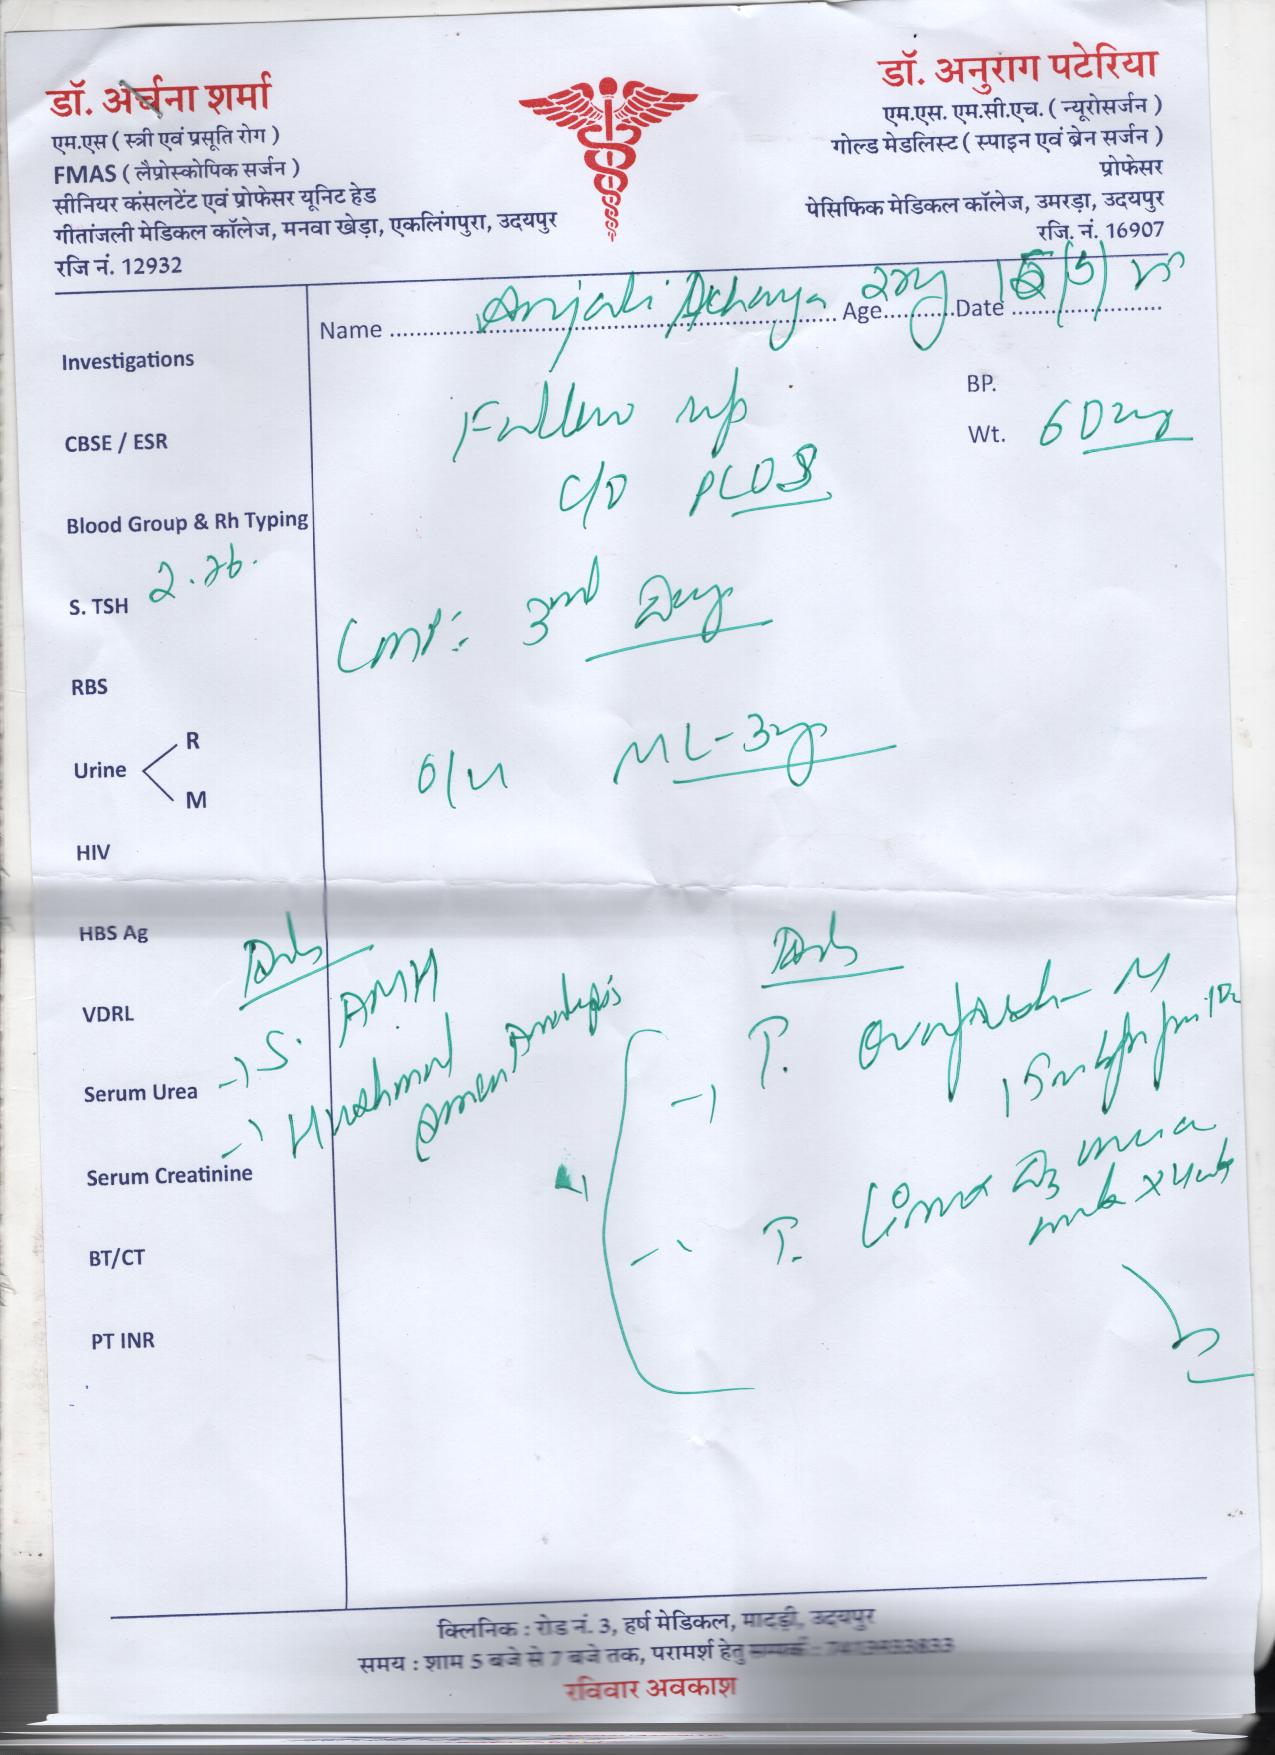 डॉ. अर्चना शर्मा
एम.एस ( स्त्री एवं प्रसूति रोग )
FMAS ( लैप्रोस्कोपिक सर्जन )
सीनियर कंसलटेंट एवं प्रोफेसर यूनिट हेड
गीतांजली मेडिकल कॉलेज, मनवा खेड़ा, एकलिंगपुरा, उदयपुर
रजि नं. 12932
डॉ. अनुराग पटेरिया
एम.एस. एम.सी.एच. ( न्यूरोसर्जन )
गोल्ड मेडलिस्ट ( स्पाइन एवं ब्रेन सर्जन )
प्रोफेसर
पेसिफिक मेडिकल कॉलेज, उमरड़ा, उदयपुर
रजि. नं. 16907
Name Anjali Acharya Age Date
BP.
Wt. 60kg
Follow up
C/O PCOS
LMP: 3rd Day
ML-3yr
Investigations
CBSE / ESR
Blood Group & Rh Typing
S. TSH 2.26.
RBS
Urine R
M
HIV
HBS Ag
VDRL
Serum Urea
Serum Creatinine
BT/CT
PT INR
Adv
S. AMH
Husband Semen Analysis
Adv
T. M
T. D3
क्लिनिक : रोड नं. 3, हर्ष मेडिकल, मादड़ी, उदयपुर
समय : शाम 5 बजे से 7 बजे तक, परामर्श हेतु सम्पर्क :
रविवार अवकाश